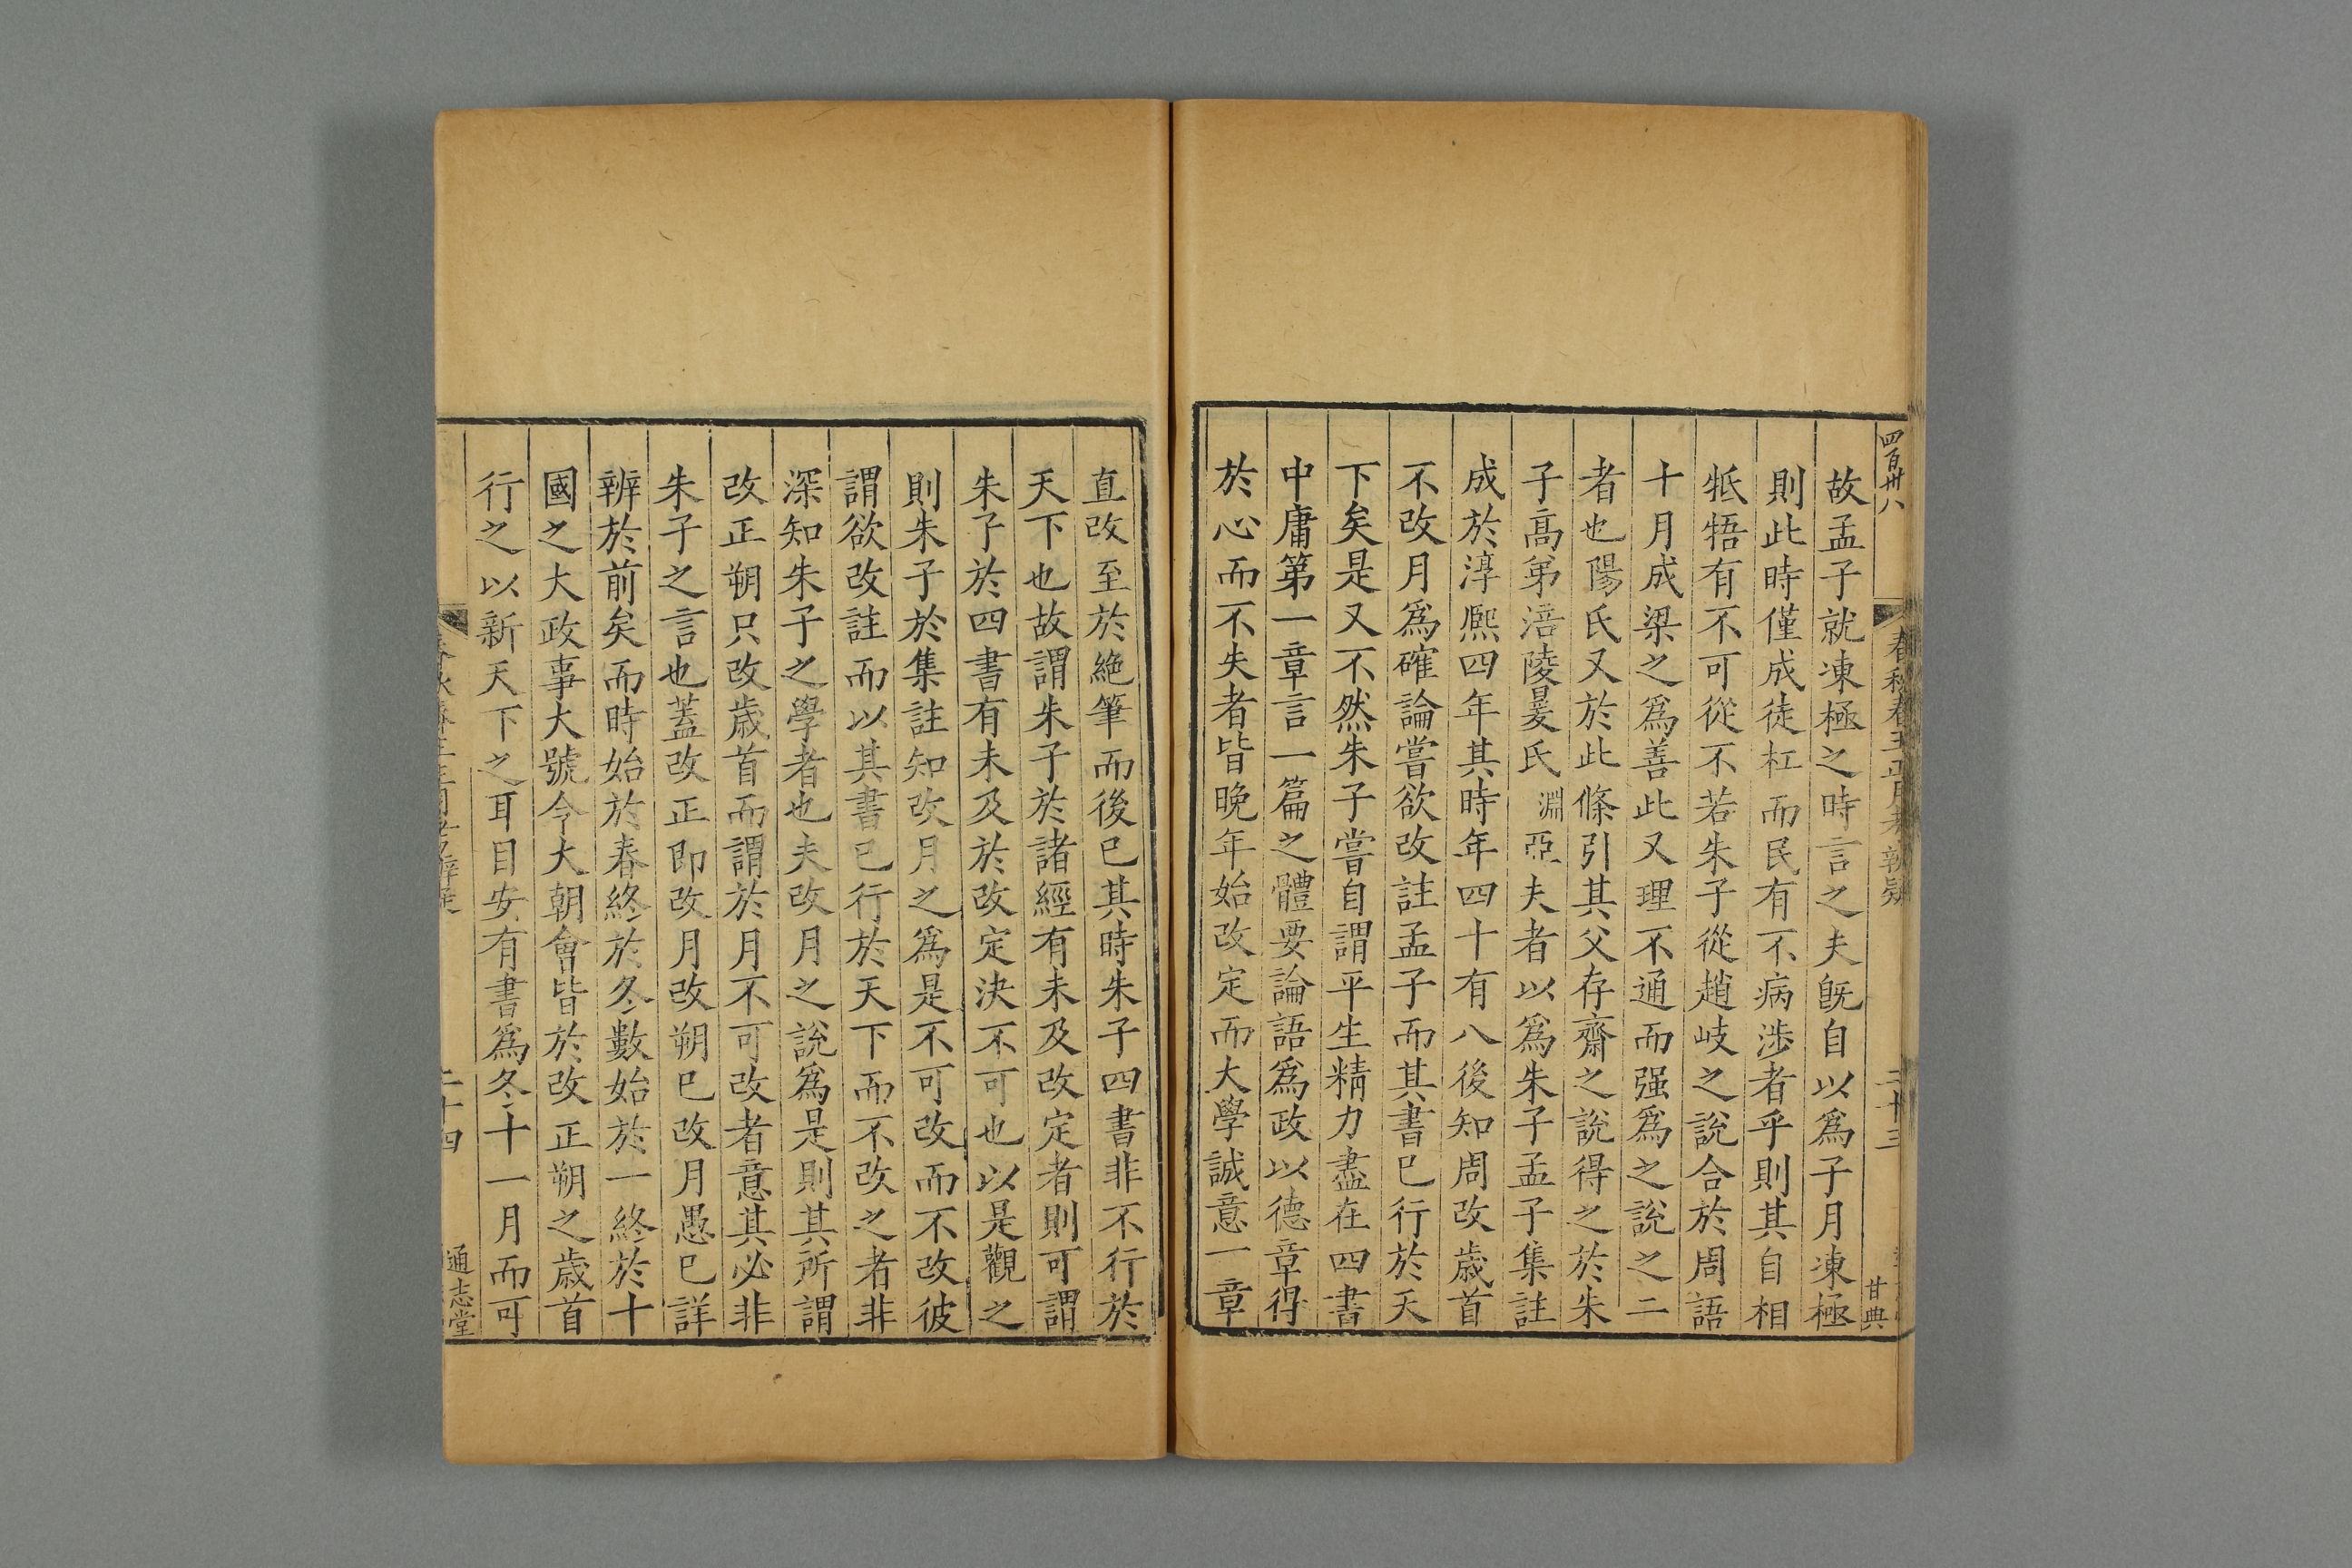 四百卅八
春秋春王正月考辨疑
二十三
甘典
故孟子就凍極之時言之夫旣自以爲子月凍極
則此時僅成徒杠而民有不病涉者乎則其自相
牴牾有不可從不若朱子從趙岐之說合於周語
十月成梁之爲善此又理不通而强爲之說之二
者也陽氏又於此條引其父存齋之說得之於朱
子高弟涪陵㬊氏淵亞夫者以爲朱子孟子集註
成於淳熈四年其時年四十有八後知周改歲首
不改月爲確論嘗欲改註孟子而其書已行於天
下矣是又不然朱子嘗自謂平生精力盡在四書
中庸第一章言一篇之體要論語爲政以德章得
於心而不失者皆晚年始改定而大學誠意一章
直改至於絶筆而後已其時朱子四書非不行於
天下也故謂朱子於諸經有未及改定者則可謂
朱子於四書有未及於改定決不可也以是觀之
則朱子於集註知改月之爲是不可改而不改彼
謂欲改註而以其書已行於天下而不改之者非
深知朱子之學者也夫改月之說爲是則其所謂
改正朔只改歲首而謂於月不可改者意其必非
朱子之言也蓋改正即改月改朔已改月愚已詳
辨於前矣而時始於春終於冬數始於一終於十
國之大政事大號令大朝會皆於改正朔之歲首
行之以新天下之耳目安有書爲冬十一月而可
二十四
通志堂